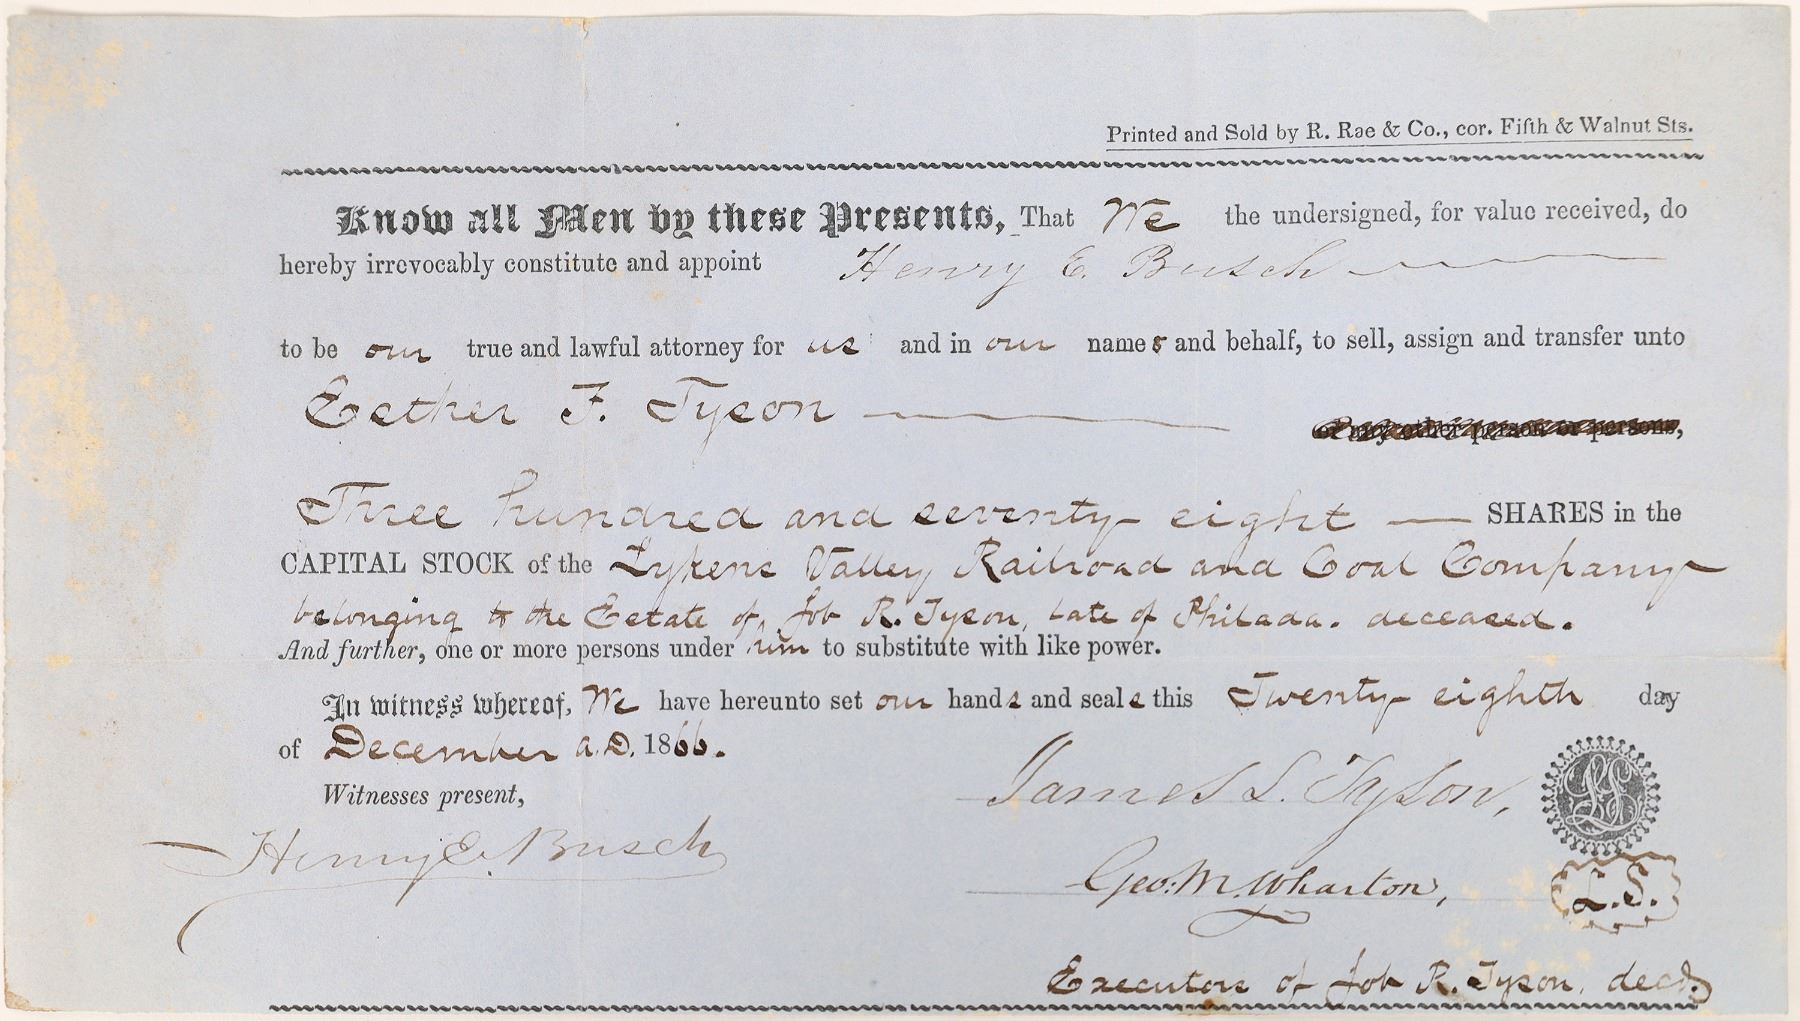 Printed and Sold by R. Rae & Co., cor. Fifth & Walnut Sts.
Know all Men by these Presents, That We the undersigned, for value received, do
hereby irrevocably constitute and appoint Henry E. Busch
to be our true and lawful attorney for us and in our names and behalf, to sell, assign and transfer unto
Esther F. Tyson
or any other person or persons,
Three hundred and seventy eight — SHARES in the
CAPITAL STOCK of the Lykens Valley Railroad and Coal Company
belonging to the Estate of Job R. Tyson, late of Philada. deceased.
And further, one or more persons under him to substitute with like power.
In witness whereof, We have hereunto set our hands and seals this Twenty eighth day
of December A.D. 1866.
Witnesses present,
James L. Tyson,
LS
Henry E. Busch
Geo: M. Wharton,
L.S.
Executors of Job R. Tyson, decd.